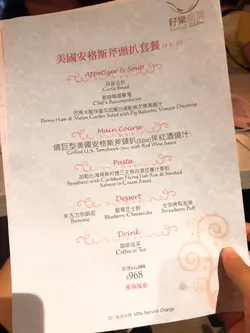 籽樂廚房
美國安格斯斧頭扒套餐
Appetizer & Soup
蒜蓉多士
Garlic Bread
廚師精選餐湯
Chef's Recommendation
Parma Ham & Melon Garden Salad with Fig Balsamic Vinegar Dressing
Main Course
燒巨型美國安格斯斧頭扒(32oz)伴紅酒燒汁
Grilled U.S. Tomahawk (32oz) with Red Wine Sauce
Pasta
Spaghetti with Caribbean Flying Fish Roe & Smoked
Salmon in Cream Sauce
Dessert
朱古力布朗尼
Brownie
藍莓芝士餅
Blueberry Cheesecake
士多啤梨泡芙
Strawberry Puff
Drink
咖啡或茶
Coffee or Tea
$968
10% Service Charge